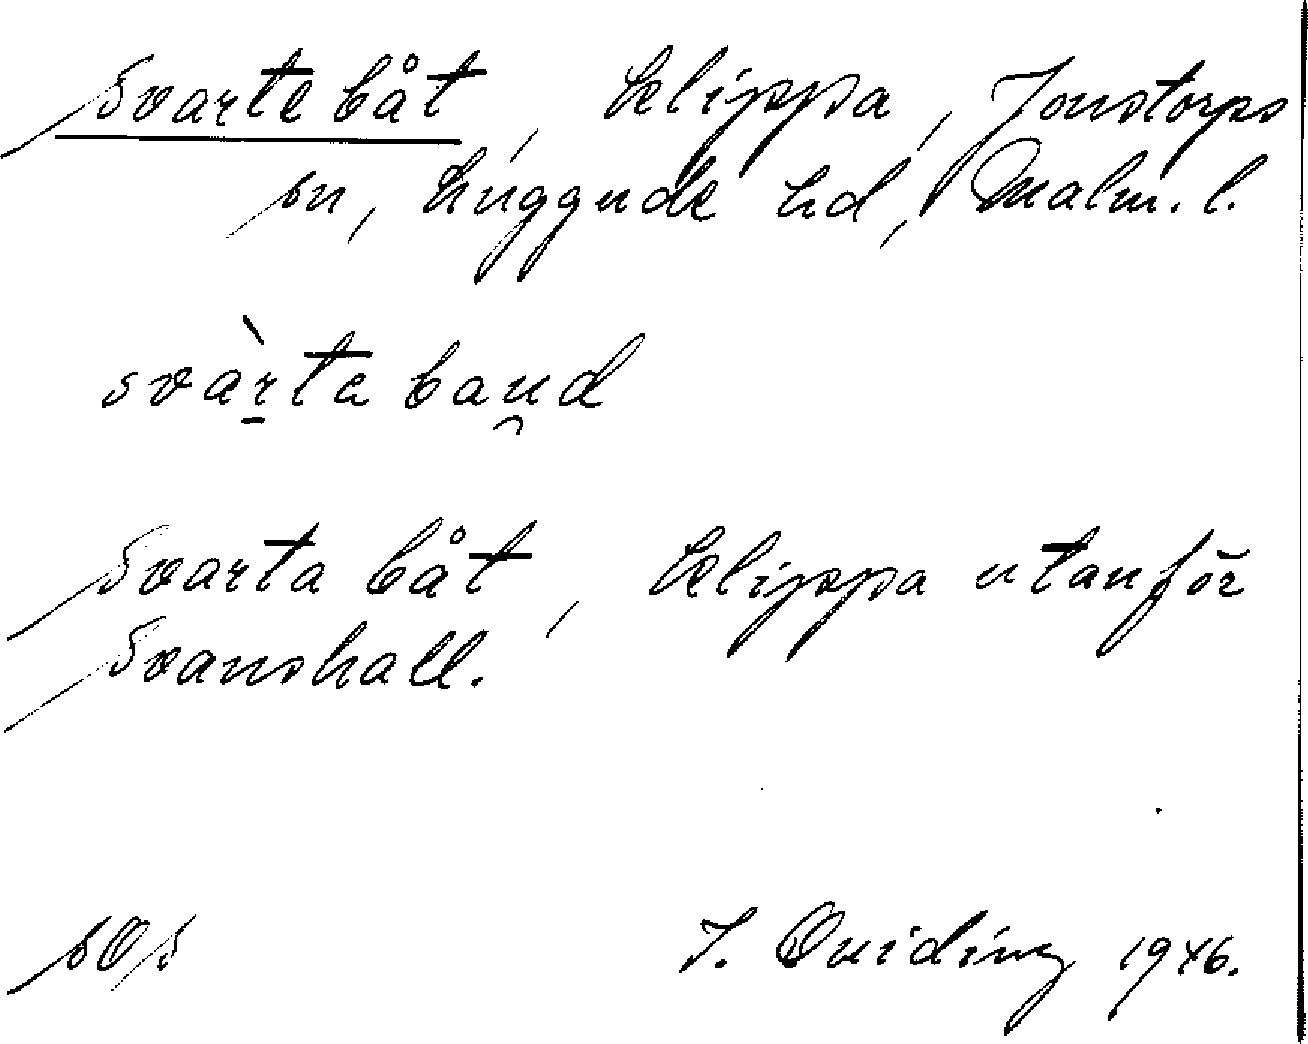 Svarte båt, klippa, Jonstorps
sn, Luggude hd, Malm. l.
svàrta baud
Svarta båt, klippa utanför
Svanshall.
I. Quiding 1946.